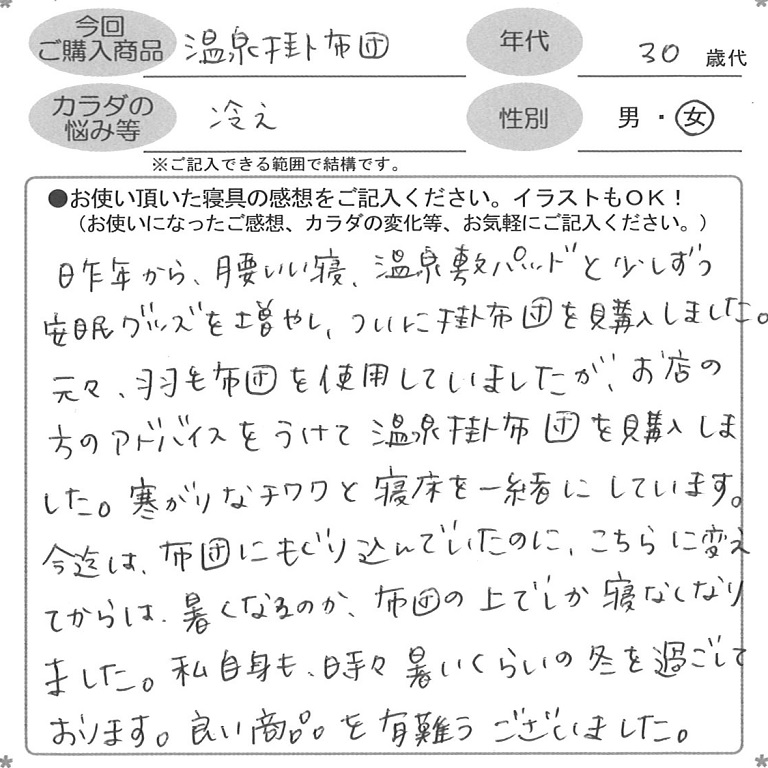 今回
ご購入商品 温泉掛布団 年代 30 歳代
カラダの
悩み等 冷え 性別 男・女
※ご記入できる範囲で結構です。
●お使い頂いた寝具の感想をご記入ください。イラストもOK！
（お使いになったご感想、カラダの変化等、お気軽にご記入ください。）
昨年から、腰いい寝、温泉敷パッドと少しずつ
安眠グッズを増やし、ついに掛布団を購入しました。
元々、羽毛布団を使用していましたが、お店の
方のアドバイスをうけて温泉掛布団を購入しま
した。寒がりなチワワと寝床を一緒にしています。
今迄は、布団にもぐり込んでいたのに、こちらに変え
てからは、暑くなるのか、布団の上でしか寝なくなり
ました。私自身も、時々暑いくらいの冬を過ごして
おります。良い商品を有難うございました。